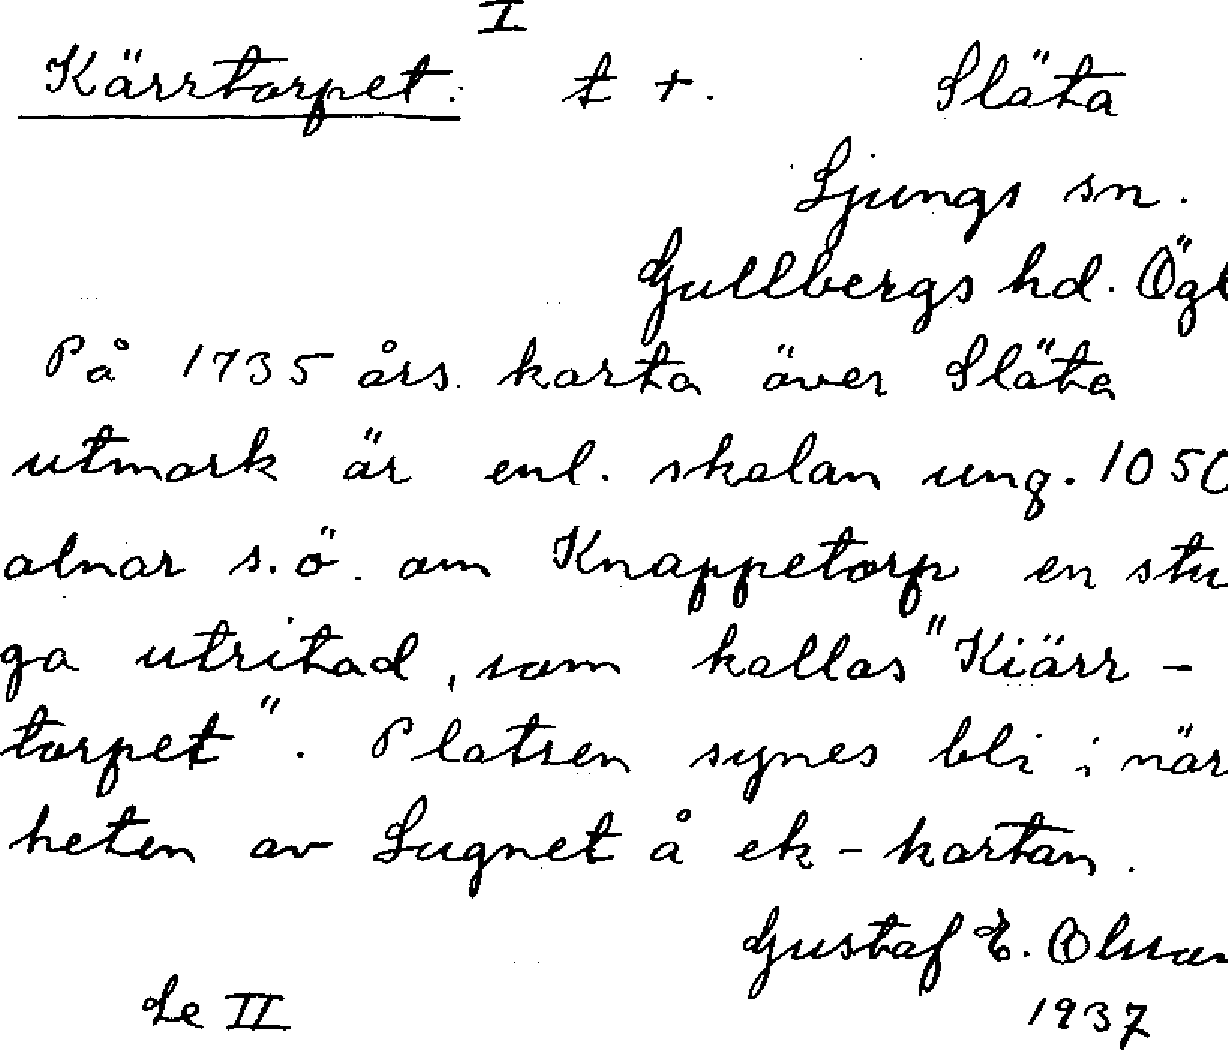 I
Kärrtorpet. t +. Släta
Ljungs sn.
Gullbergs hd. Ögl
På 1735 års karta över Släta
utmark är enl. skalan ung. 1050
alnar s.ö. om Knappetorp en stu
ga utritad, som kallas "Kiärr-
torpet". Platsen synes bli i när
heten av Lugnet å ek-kartan.
Gustaf E.
Le II 1937